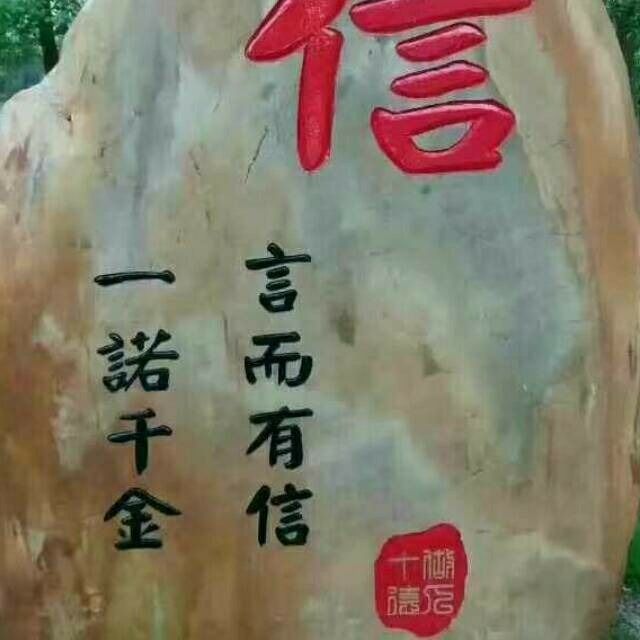 信
言而有信
一諾千金
做人
十德